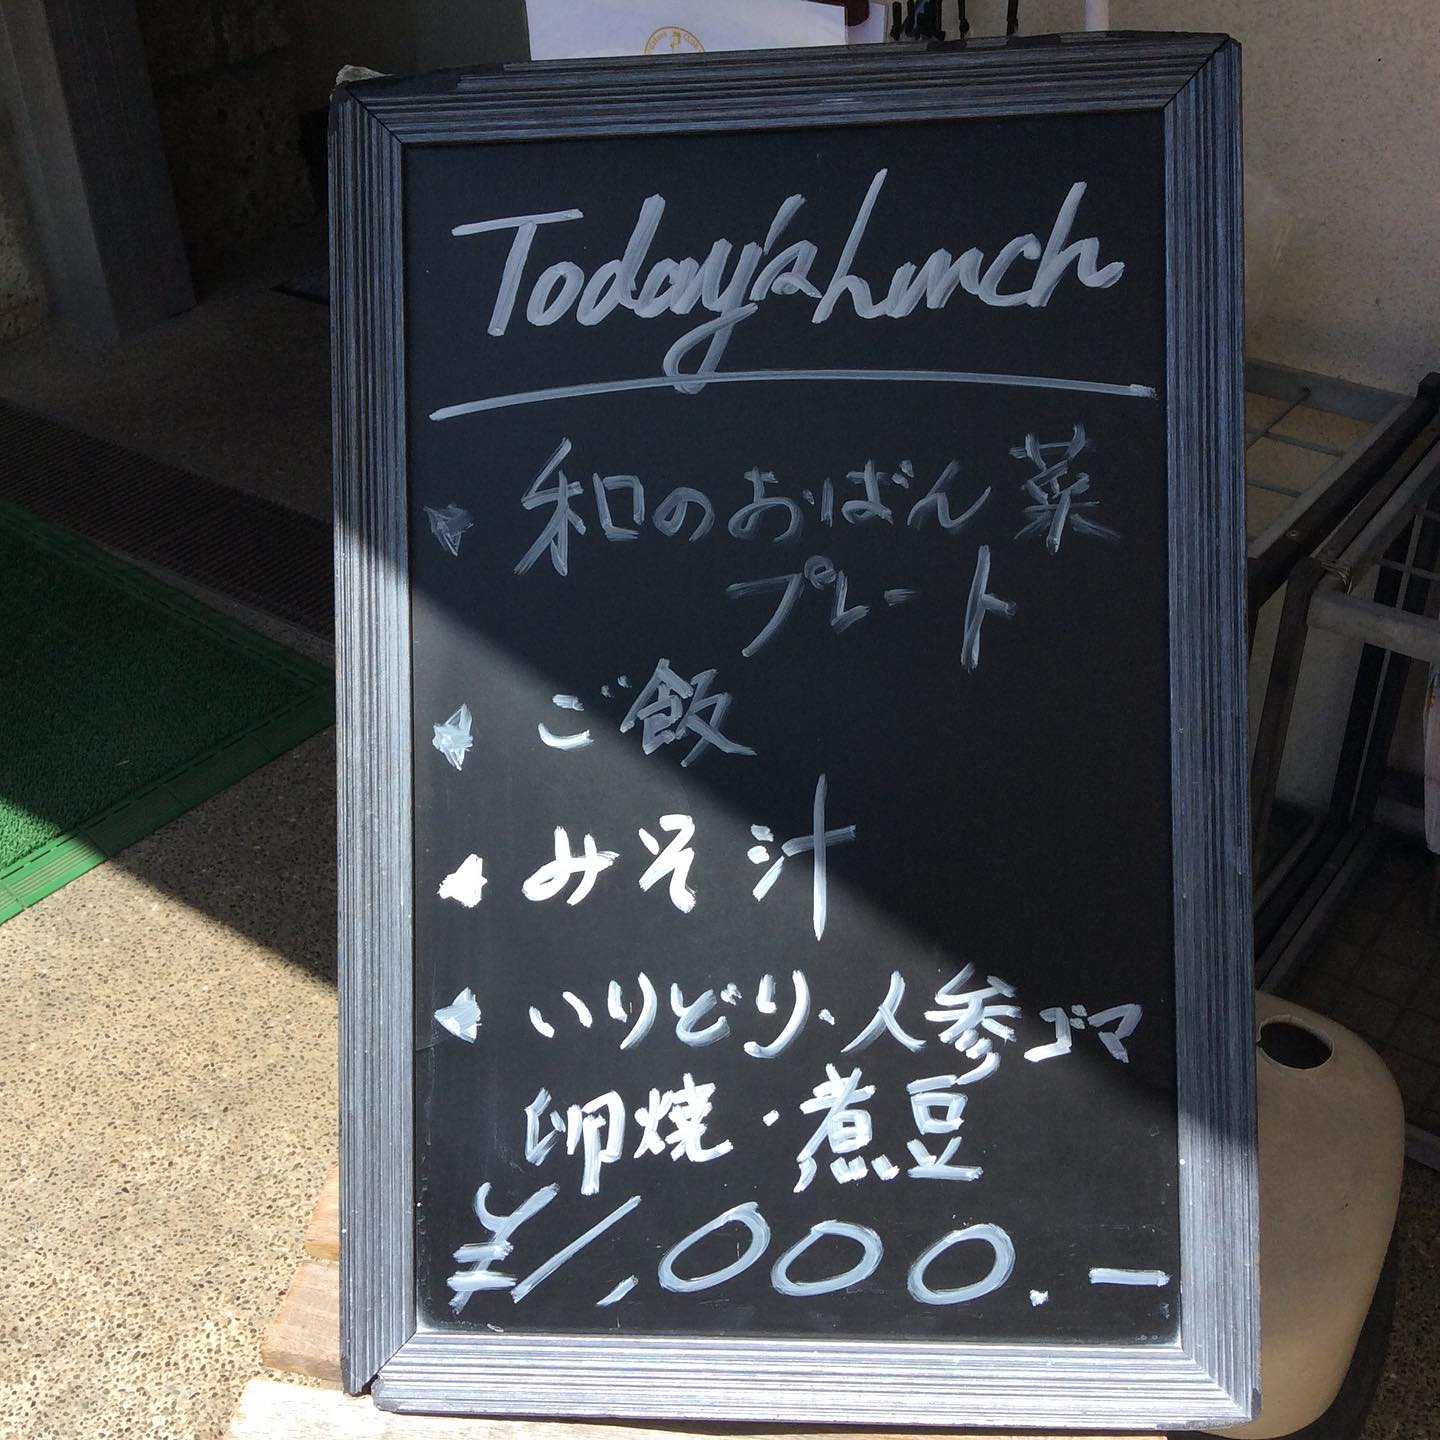 Today's Lunch
★ 和のおばん菜
プレート
★ ご飯
★ みそ汁
★ いりどり・人参ゴマ
卵焼・煮豆
¥1,000.-